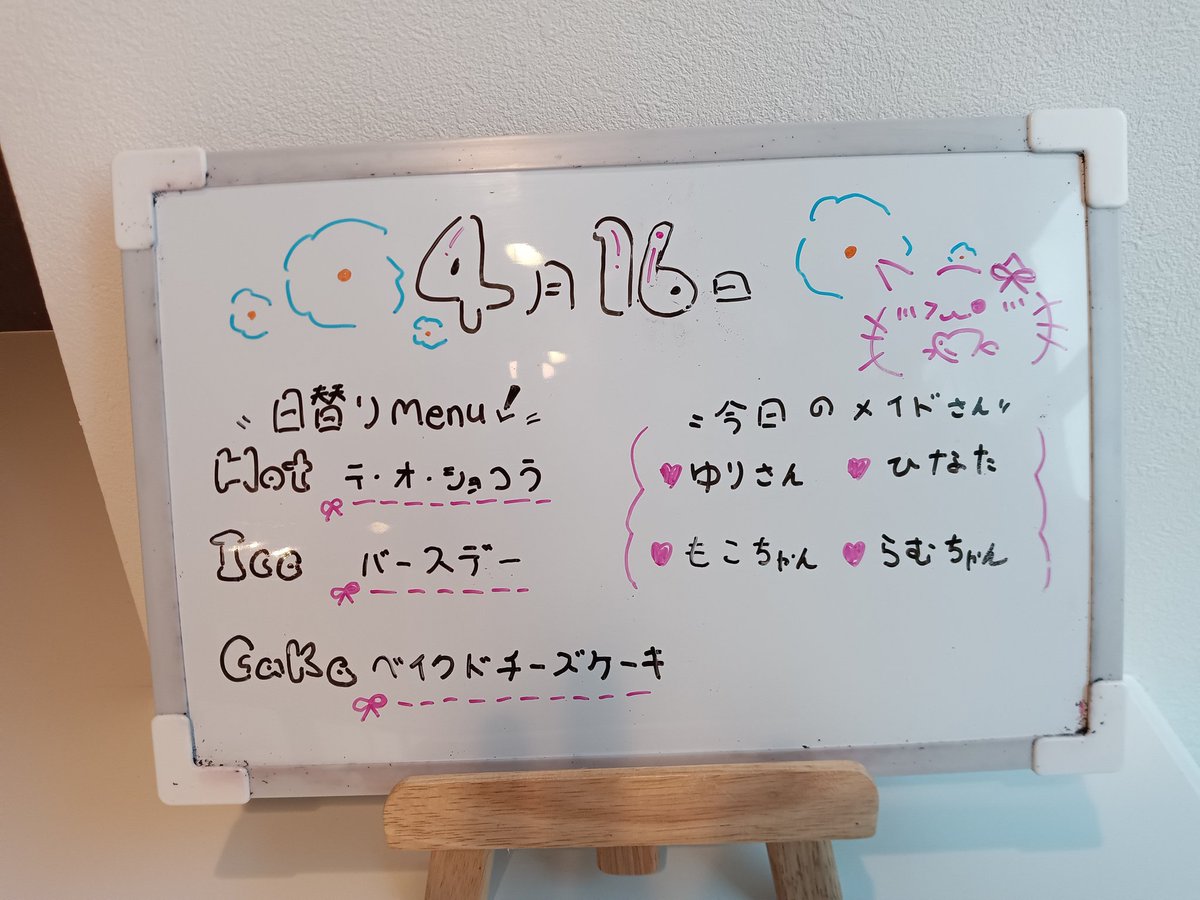 4月16日
日替りMenu!
Hot テ・オ・ショコラ
Ice バースデー
Cake ベイクドチーズケーキ
今日のメイドさん
ゆりさん ひなた
もこちゃん らむちゃん